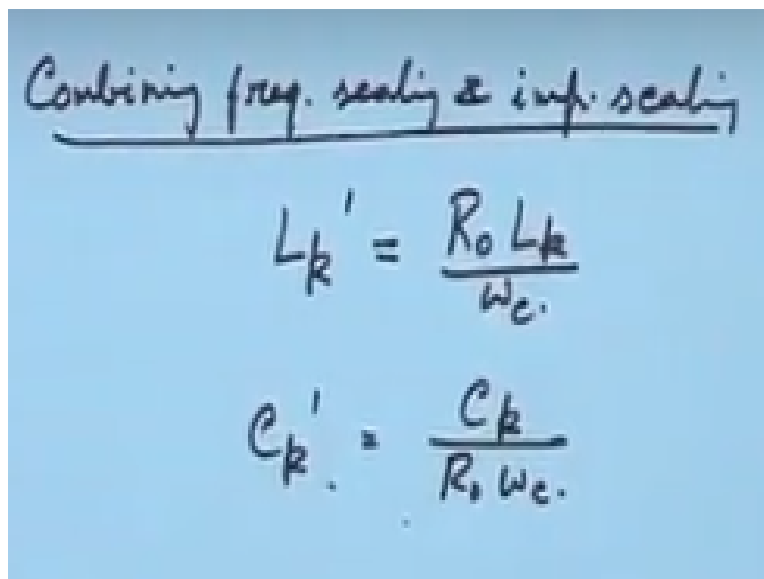 Combining freq. scaling & imp. scaling
L_k' = R_0 L_k / ω_c.
C_k' = C_k / R_0 ω_c.